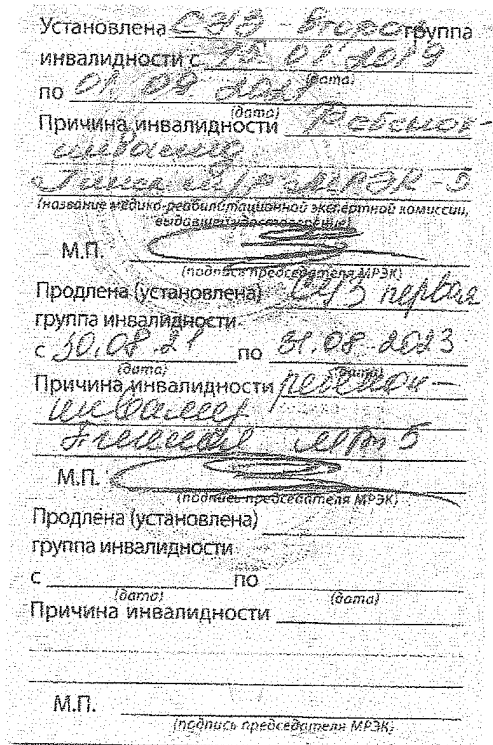 Установлена СУЗ - Вторая группа
инвалидности с 15. 01 2019
(дата)
по 01. 09. 2021
(дата)
Причина инвалидности Ребенок-
инвалид
МРЭК - 5
(название медико-реабилитационной экспертной комиссии,
выдавшей удостоверение)
М.П.
(подпись председателя МРЭК)
Продлена (установлена) СУЗ первая
группа инвалидности
с 30.08 21 по 31.08.2023
(дата) (дата)
Причина инвалидности ребенок-
инвалид
5
М.П.
(подпись председателя МРЭК)
Продлена (установлена)
группа инвалидности
с по
(дата) (дата)
Причина инвалидности
М.П.
(подпись председателя МРЭК)